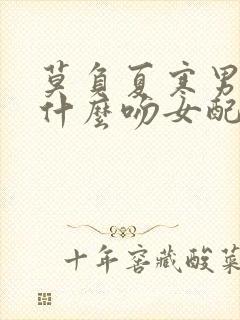 莫負夏寒男
什麼吻女配
十年窖藏酸菜